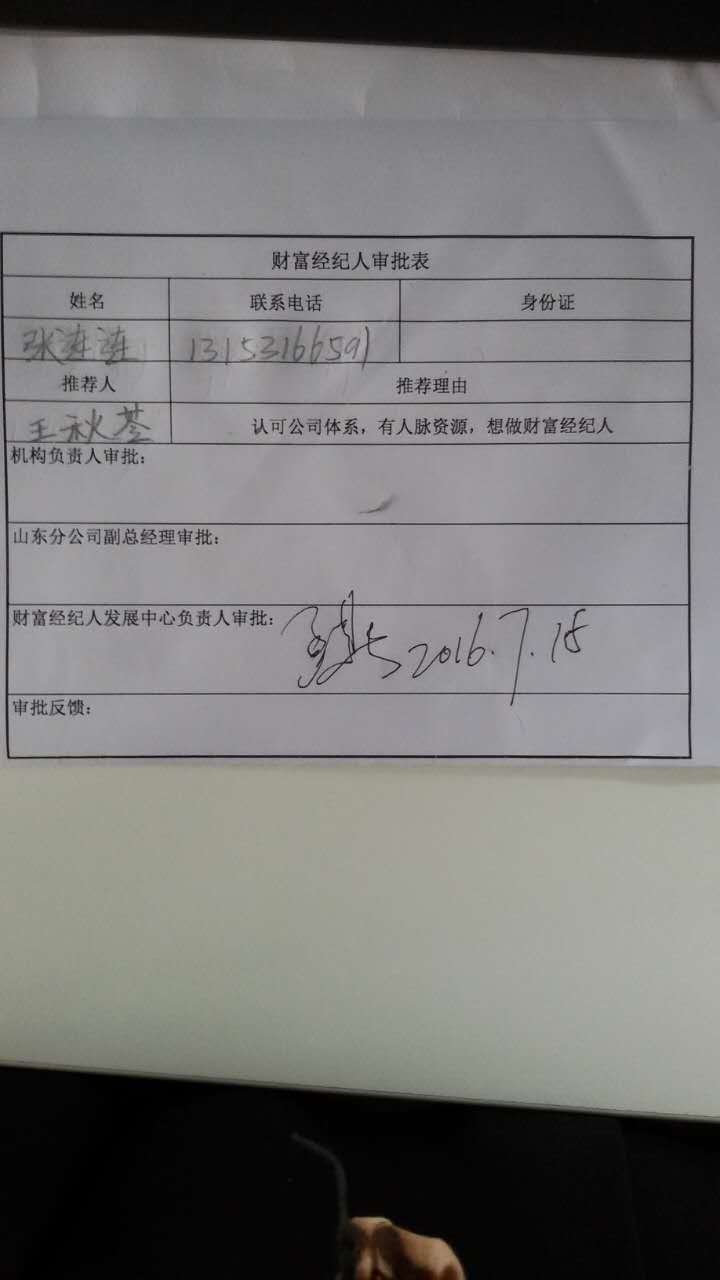 财富经纪人审批表
姓名 联系电话 身份证
张连莲 13153166591
推荐人 推荐理由
王秋荃 认可公司体系，有人脉资源，想做财富经纪人
机构负责人审批：
山东分公司副总经理审批：
财富经纪人发展中心负责人审批： 2016.7.18
审批反馈：